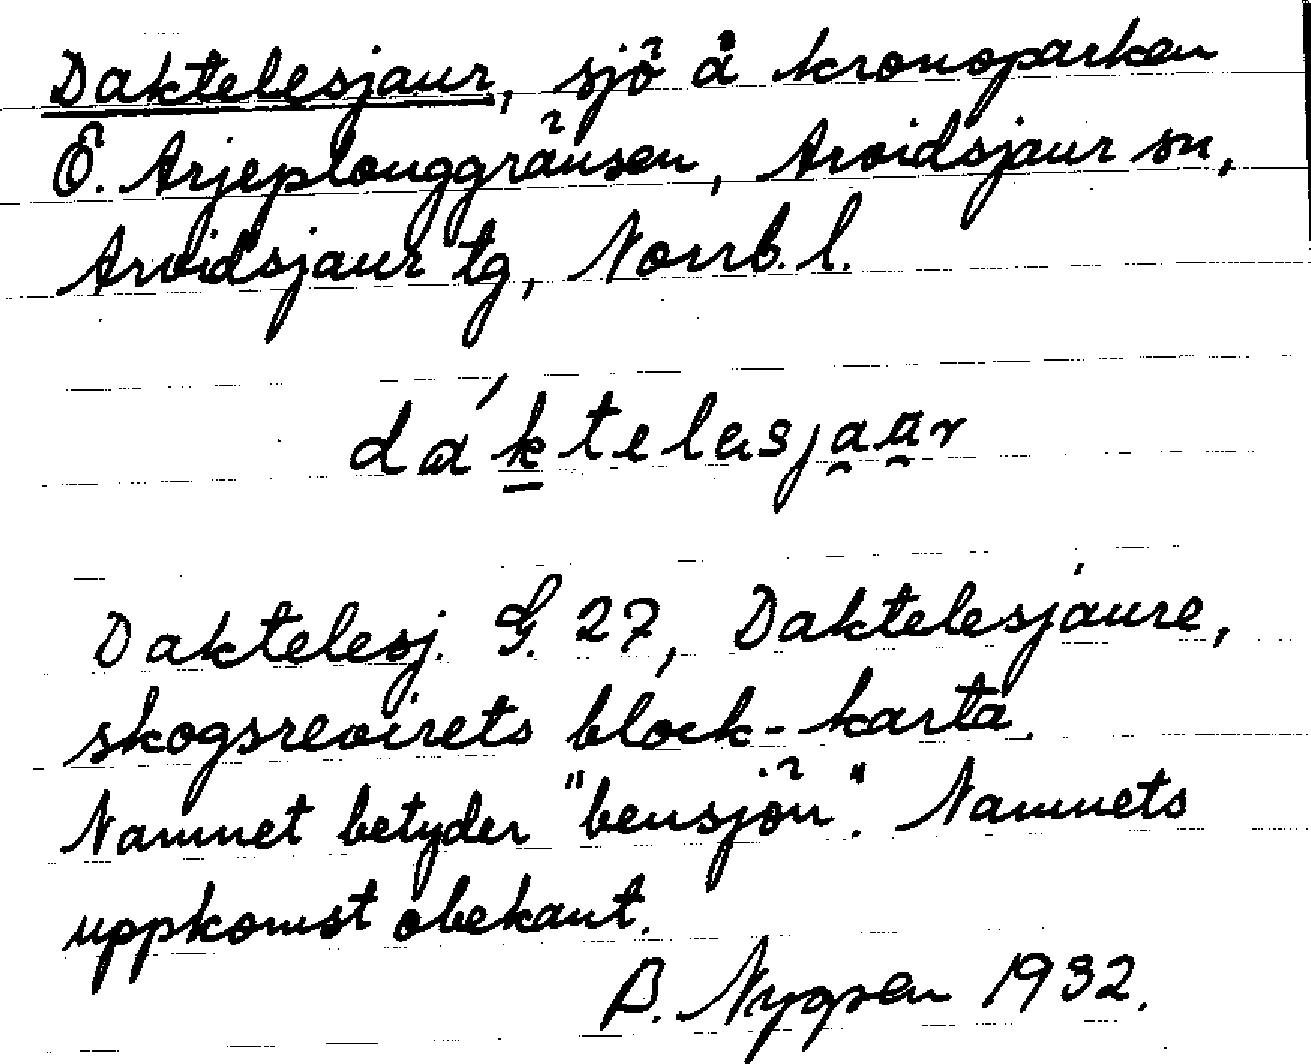 Daktelesjaur, sjö å kronoparken
Ö. Arjeplouggränsen, Arvidsjaur sn,
Arvidsjaur tg, Norrb. l.
da´ktelesjaar
Daktelesj. G. 27, Daktelesjaure,
skogsrevirets block-karta.
Namnet betyder "bensjön". Namnets
uppkomst obekant.
B. Nygren 1932.